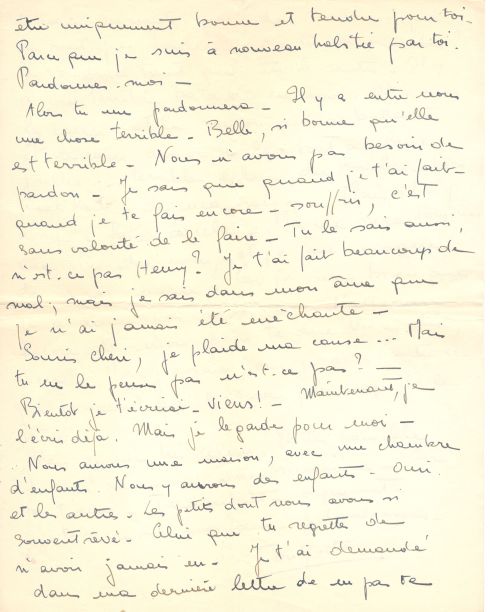 être uniquement bonne et tendre pour toi.
Parce que je suis à nouveau habitée par toi.
Pardonnes-moi —
Alors tu me pardonneras — Il y a entre nous
une chose terrible — Belle, si bonne qu'elle
est terrible — Nous n'avons pas besoin de
pardon — Je sais que quand je t'ai fait —
quand je te fais encore — souffrir, c'est
sans volonté de le faire — Tu le sais aussi,
n'est-ce pas Henry? Je t'ai fait beaucoup de
mal, mais je sais dans mon âme que
je n'ai jamais été méchante —
Souris chéri, je plaide ma cause... Mais
tu ne le penses pas n'est-ce pas? —
Bientôt je t'écrirai — viens! — Maintenant, je
l'écris déjà. Mais je le garde pour moi —
Nous aurons une maison, avec une chambre
d'enfants. Nous y aurons des enfants. Oui.
et les autres. Les petits dont nous avons si
souvent rêvé. Celui que tu regrettes de
n'avoir jamais eu — Je t'ai demandé
dans ma dernière lettre de ne pas te